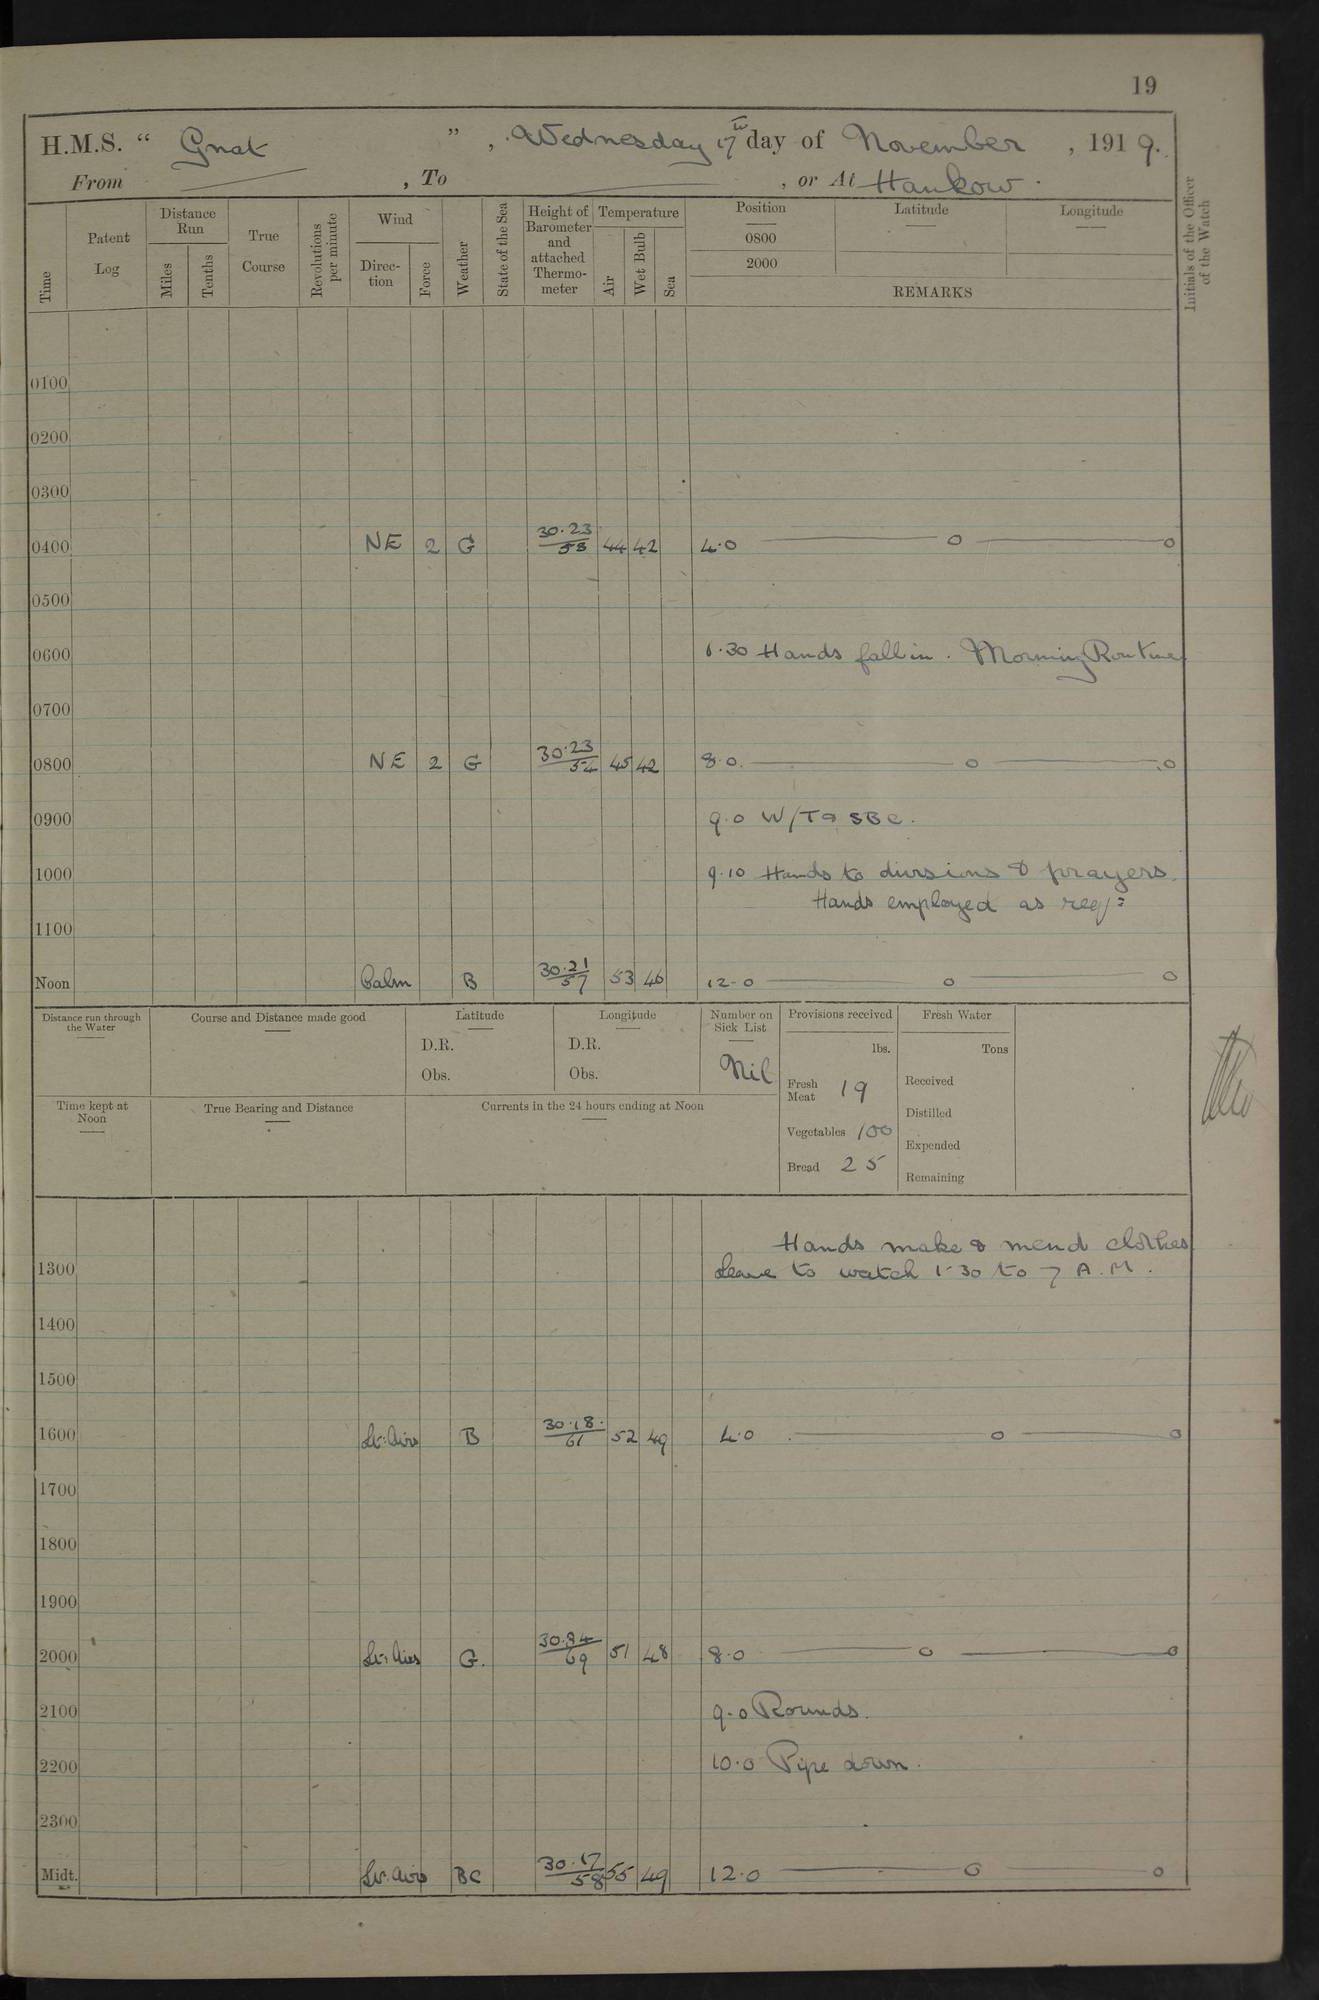 19
H.M.S. “ Gnat ” , Wednesday 17th day of November , 1919.
From , To , or At Hankow.
Time
Patent Log
Distance Run
Miles
Tenths
True Course
Revolutions per minute
Wind
Direction
Force
Weather
State of the Sea
Height of Barometer and attached Thermometer
Temperature
Air
Wet Bulb
Sea
Position
0800
2000
Latitude
Longitude
REMARKS
Initials of the Officer of the Watch
0100
0200
0300
0400 NE 2 G 30.23/58 44 42 4.0 o o
0500
0600 6.30 Hands fall in. Morning Routine
0700
0800 NE 2 G 30.23/54 45 42 8.0. o o
0900 9.0 W/T a SBC.
1000 9.10 Hands to divsions & prayers.
Hands employed as req:
1100
Noon Calm B 30.21/57 53 46 12.0 o o
Distance run through the Water
Course and Distance made good
Latitude
D.R.
Obs.
Longitude
D.R.
Obs.
Number on Sick List
Nil
Provisions received
lbs.
Fresh Meat 19
Vegetables 100
Bread 25
Fresh Water
Tons
Received
Distilled
Expended
Remaining
Time kept at Noon
True Bearing and Distance
Currents in the 24 hours ending at Noon
Hands make & mend clothes
1300 Leave to watch 1.30 to 7 A.M.
1400
1500
1600 Lt. Airs B 30.18./61 52 49 4.0 o o
1700
1800
1900
2000 Lt. Airs G. 30.24/69 51 48 8.0 o o
2100 9.0 Rounds.
2200 10.0 Pipe down.
2300
Midt. Lt. Airs BC 30.17/58 55 49 12.0 o o